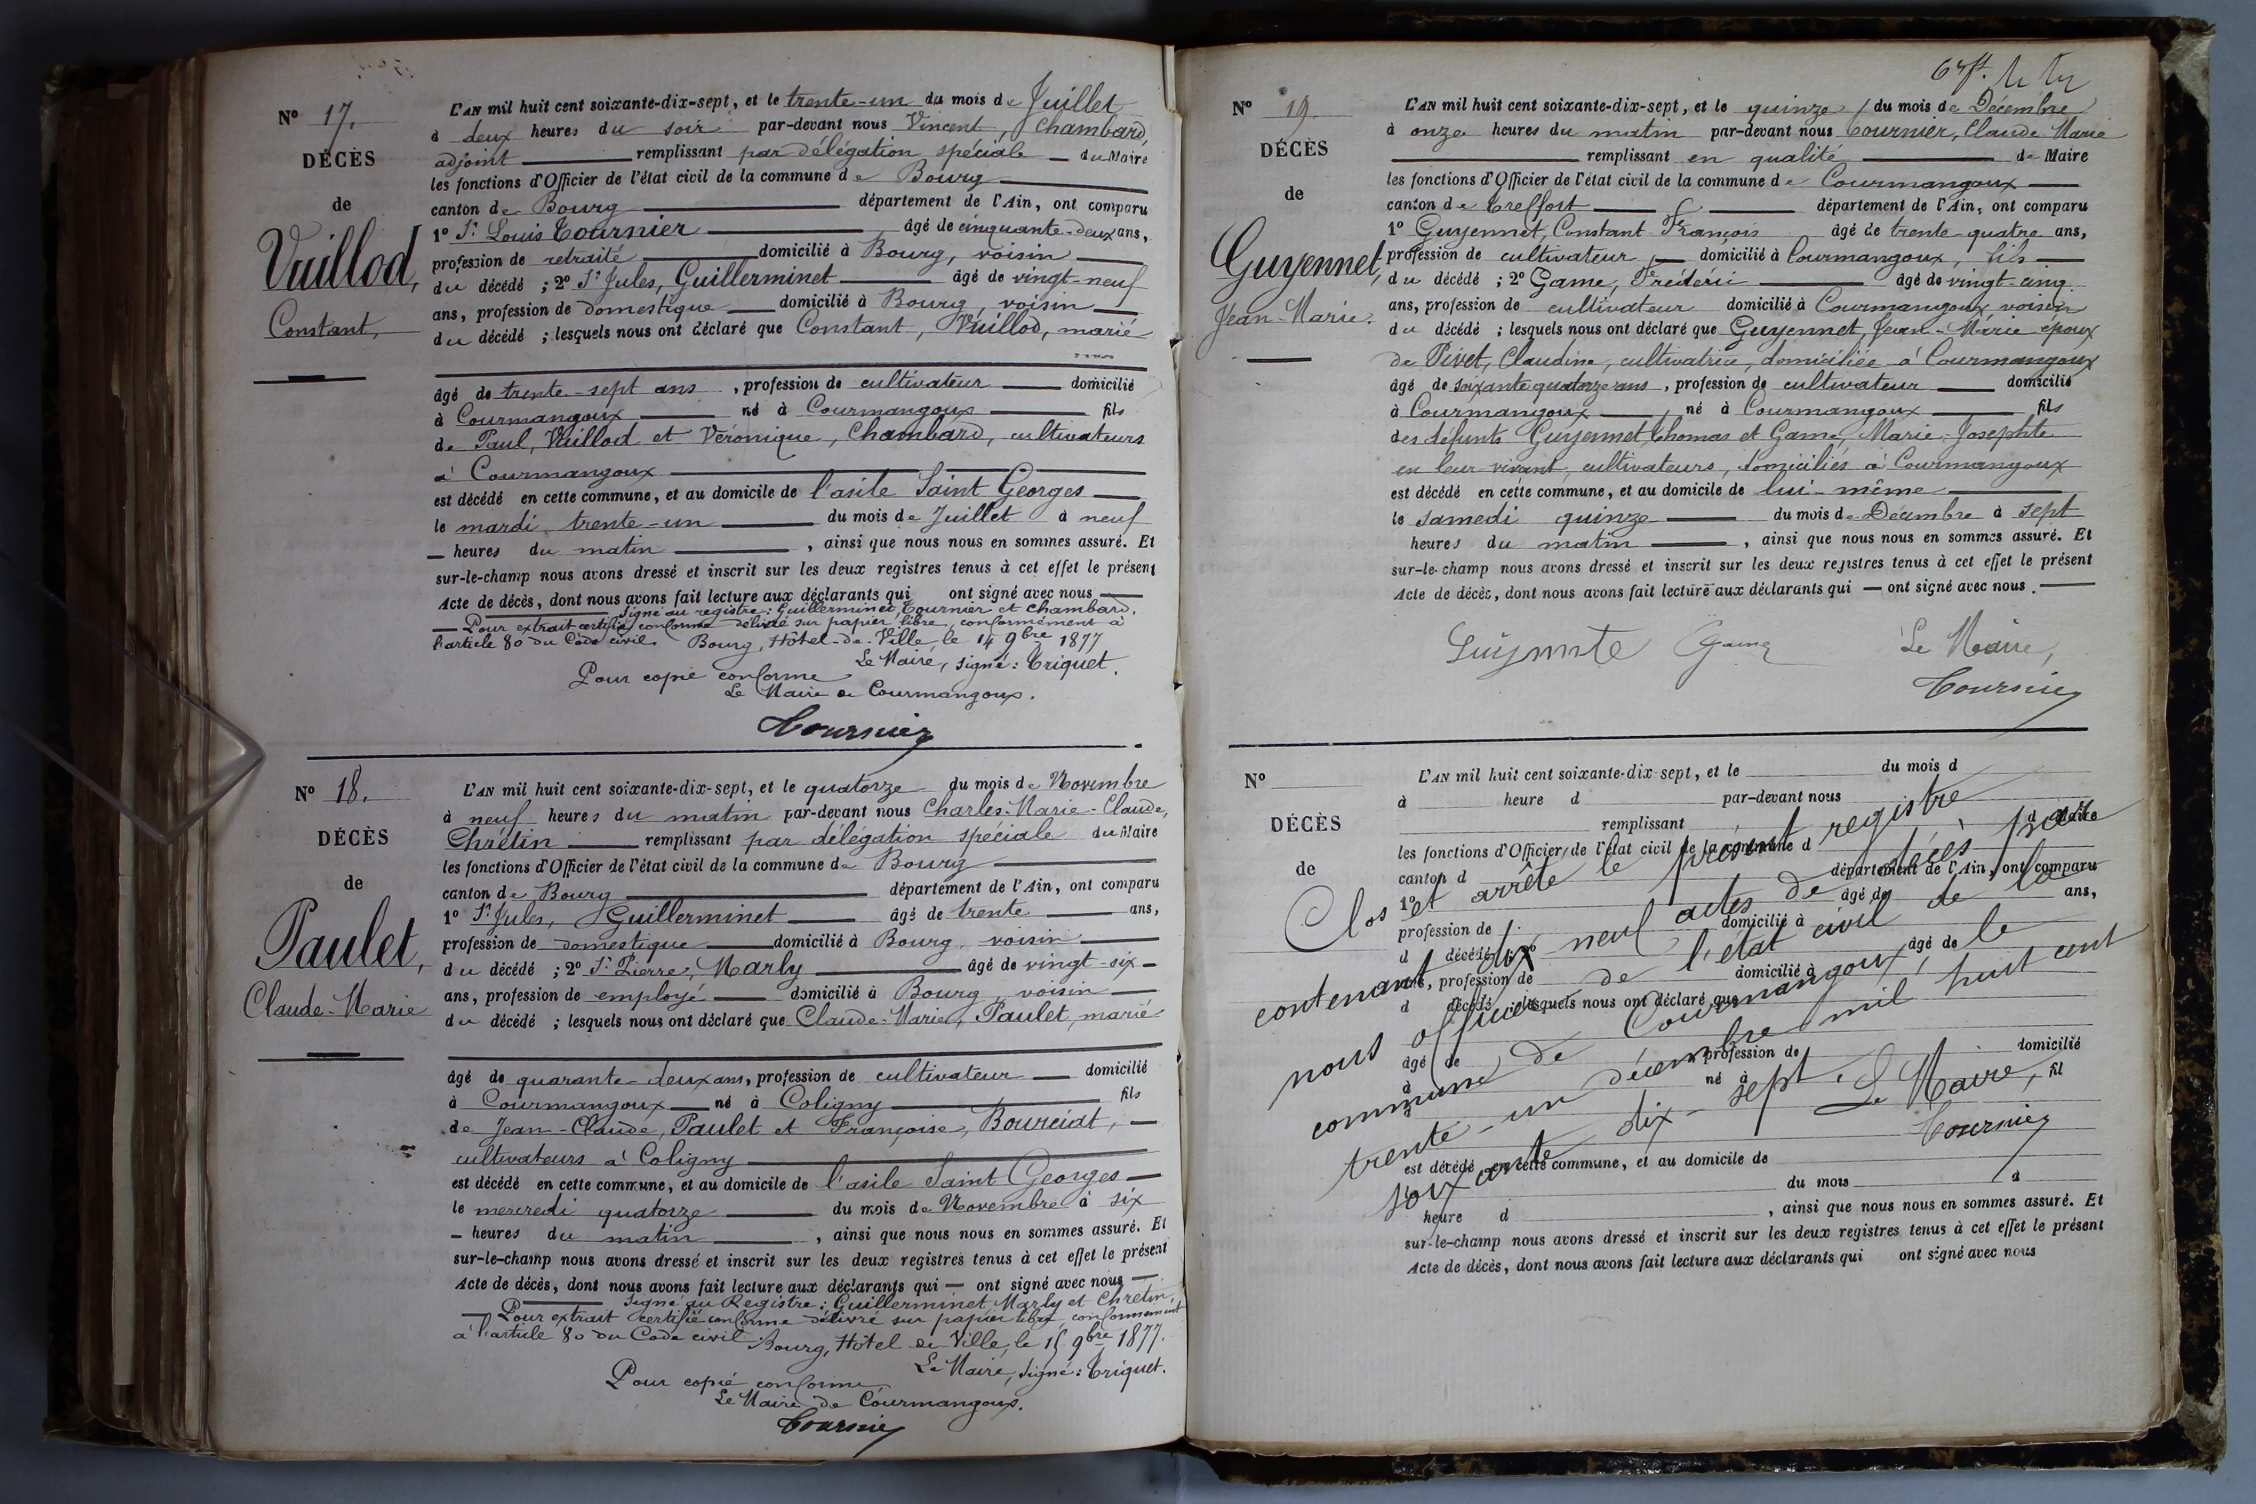 N° 17.
DÉCÈS
de
Vuillod,
Constant,
L'AN mil huit cent soixante-dix-sept, et le trente-un du mois de Juillet
à deux heures du soir par-devant nous Vincent, Chambard,
adjoint remplissant par délégation spéciale du Maire
les fonctions d'Officier de l'état civil de la commune de Bourg
canton de Bourg département de l'Ain, ont comparu
1° Sr Louis Tournier âgé de cinquante-deux ans,
profession de retraité domicilié à Bourg, voisin
du décédé ; 2° Sr Jules, Guillerminet âgé de vingt-neuf
ans, profession de domestique domicilié à Bourg, voisin
du décédé ; lesquels nous ont déclaré que Constant, Vuillod, marié
âgé de trente-sept ans, profession de cultivateur domicilié
à Courmangoux né à Courmangoux fils
de Paul, Vuillod et Véronique, Chambard, cultivateurs
à Courmangoux
est décédé en cette commune, et au domicile de l'asile Saint Georges
le mardi trente-un du mois de Juillet à neuf
heures du matin, ainsi que nous nous en sommes assuré. Et
sur-le-champ nous avons dressé et inscrit sur les deux registres tenus à cet effet le présent
Acte de décès, dont nous avons fait lecture aux déclarants qui ont signé avec nous
Signé au registre : Guillerminet, Tournier et Chambard.
Pour extrait certifié conforme délivré sur papier libre, conformément à
l'article 80 du Code civil. Bourg, Hôtel-de-Ville, le 14 9bre 1877
Le Maire, signé : Triquet.
Pour copie conforme
Le Maire de Courmangoux.
Tournier
N° 18.
DÉCÈS
de
Paulet,
Claude-Marie
L'AN mil huit cent soixante-dix-sept, et le quatorze du mois de Novembre
à neuf heures du matin par-devant nous Charles-Marie-Claude,
Chrétin remplissant par délégation spéciale du Maire
les fonctions d'Officier de l'état civil de la commune de Bourg
canton de Bourg département de l'Ain, ont comparu
1° Sr Jules, Guillerminet âgé de trente ans,
profession de domestique domicilié à Bourg, voisin
du décédé ; 2° Sr Pierre, Marly âgé de vingt-six
ans, profession de employé domicilié à Bourg, voisin
du décédé ; lesquels nous ont déclaré que Claude-Marie, Paulet, marié
âgé de quarante-deux ans, profession de cultivateur domicilié
à Courmangoux né à Coligny fils
de Jean-Claude, Paulet et Françoise, Bourciat,
cultivateurs à Coligny
est décédé en cette commune, et au domicile de l'asile Saint Georges
le mercredi quatorze du mois de Novembre à six
heures du matin, ainsi que nous nous en sommes assuré. Et
sur-le-champ nous avons dressé et inscrit sur les deux registres tenus à cet effet le présent
Acte de décès, dont nous avons fait lecture aux déclarants qui ont signé avec nous
Signé au Registre : Guillerminet, Marly et Chrétin,
Pour extrait certifié conforme délivré sur papier libre, conformément
à l'article 80 du Code civil. Bourg, Hôtel de Ville, le 15 9bre 1877.
Le Maire, signé : Triquet.
Pour copie conforme
Le Maire de Courmangoux.
Tournier
N° 19.
DÉCÈS
de
Guyennet,
Jean-Marie.
L'AN mil huit cent soixante-dix-sept, et le quinze du mois de Décembre
à onze heures du matin par-devant nous Tournier, Claude Marie
remplissant en qualité de Maire
les fonctions d'Officier de l'état civil de la commune de Courmangoux
canton de Treffort département de l'Ain, ont comparu
1° Guyennet, Constant François âgé de trente-quatre ans,
profession de cultivateur domicilié à Courmangoux, fils
du décédé ; 2° Game, Frédéric âgé de vingt-cinq
ans, profession de cultivateur domicilié à Courmangoux voisin
du décédé ; lesquels nous ont déclaré que Guyennet, Jean-Marie époux
de Pivet, Claudine, cultivatrice, domiciliée à Courmangoux
âgé de soixante quatorze ans, profession de cultivateur domicilié
à Courmangoux, né à Courmangoux fils
des défunts Guyennet, Thomas et Game, Marie-Josephte
en leur vivant, cultivateurs, domiciliés à Courmangoux
est décédé en cette commune, et au domicile de lui-même
le samedi quinze du mois de Décembre à sept
heures du matin, ainsi que nous nous en sommes assuré. Et
sur-le-champ nous avons dressé et inscrit sur les deux registres tenus à cet effet le présent
Acte de décès, dont nous avons fait lecture aux déclarants qui ont signé avec nous.
Game Le Maire,
Tournier
N°
DÉCÈS
de
L'AN mil huit cent soixante-dix-sept, et le du mois d
à heure d par-devant nous
remplissant d Maire
les fonctions d'Officier de l'état civil de la commune d
canton d département de l'Ain, ont comparu
1° âgé de ans,
profession de domicilié à
d décédé ; 2° âgé de
ans, profession de domicilié à
d décédé ; lesquels nous ont déclaré que
âgé de profession de domicilié
à né à fil
est décédé en cette commune, et au domicile de
du mois à
heure d , ainsi que nous nous en sommes assuré. Et
sur-le-champ nous avons dressé et inscrit sur les deux registres tenus à cet effet le présent
Acte de décès, dont nous avons fait lecture aux déclarants qui ont signé avec nous
Clos et arrêté le présent registre
contenant dix-neuf actes de décès par
nous officier de l'état civil de la
commune de Courmangoux, le
trente-un décembre mil huit cent
soixante dix-sept. Le Maire,
Tournier